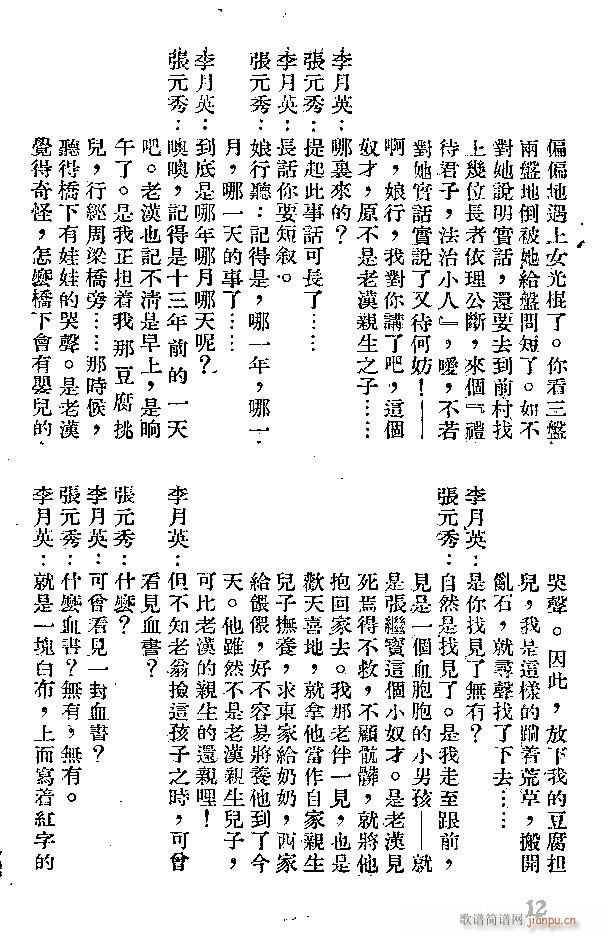 偏偏地遇上女光棍了。你看三盤
兩盤地倒被她給盤問短了。如不
對她說明實話，還要去到前村找
上幾位長者依理公斷，來個『禮
待君子，法治小人』，噯，不若
對她實話實說了又待何妨！——
啊，娘行，我對你講了吧，這個
奴才，原不是老漢親生之子……
李月英：哪裏來的？
張元秀：提起此事話可長了……
李月英：長話你要短敘。
張元秀：娘行聽：記得是，哪一年，哪一
月，哪一天的事了……
李月英：到底是哪年哪月哪天呢？
張元秀：噢噢，記得是十三年前的一天
吧。老漢也記不清是早上，是晌
午了。是我正担着我那豆腐挑
兒，行經周梁橋旁……那時候，
聽得橋下有娃娃的哭聲。是老漢
覺得奇怪，怎麼橋下會有嬰兒的
哭聲。因此，放下我的豆腐担
兒，我是這樣的踏着荒草，搬開
亂石，就尋聲找了下去……
李月英：是你找見了無有？
張元秀：自然是找見了。是我走至跟前，
見是一個血胞胞的小男孩——就
是張繼寶這個小奴才。是老漢見
死焉得不救，不顧骯髒，就將他
抱回家去。我那老伴一見，也是
歡天喜地，就拿他當作自家親生
兒子撫養，求東家給奶奶，西家
給餵餵，好不容易將養他到了今
天。他雖然不是老漢親生兒子，
可比老漢的親生的還親哩！
李月英：但不知老翁撿這孩子之時，可曾
看見血書？
張元秀：什麼？
李月英：可曾看見一封血書？
張元秀：什麼血書？無有，無有。
李月英：就是一塊白布，上面寫着紅字的
12
歌谱简谱网
jianpu.cn